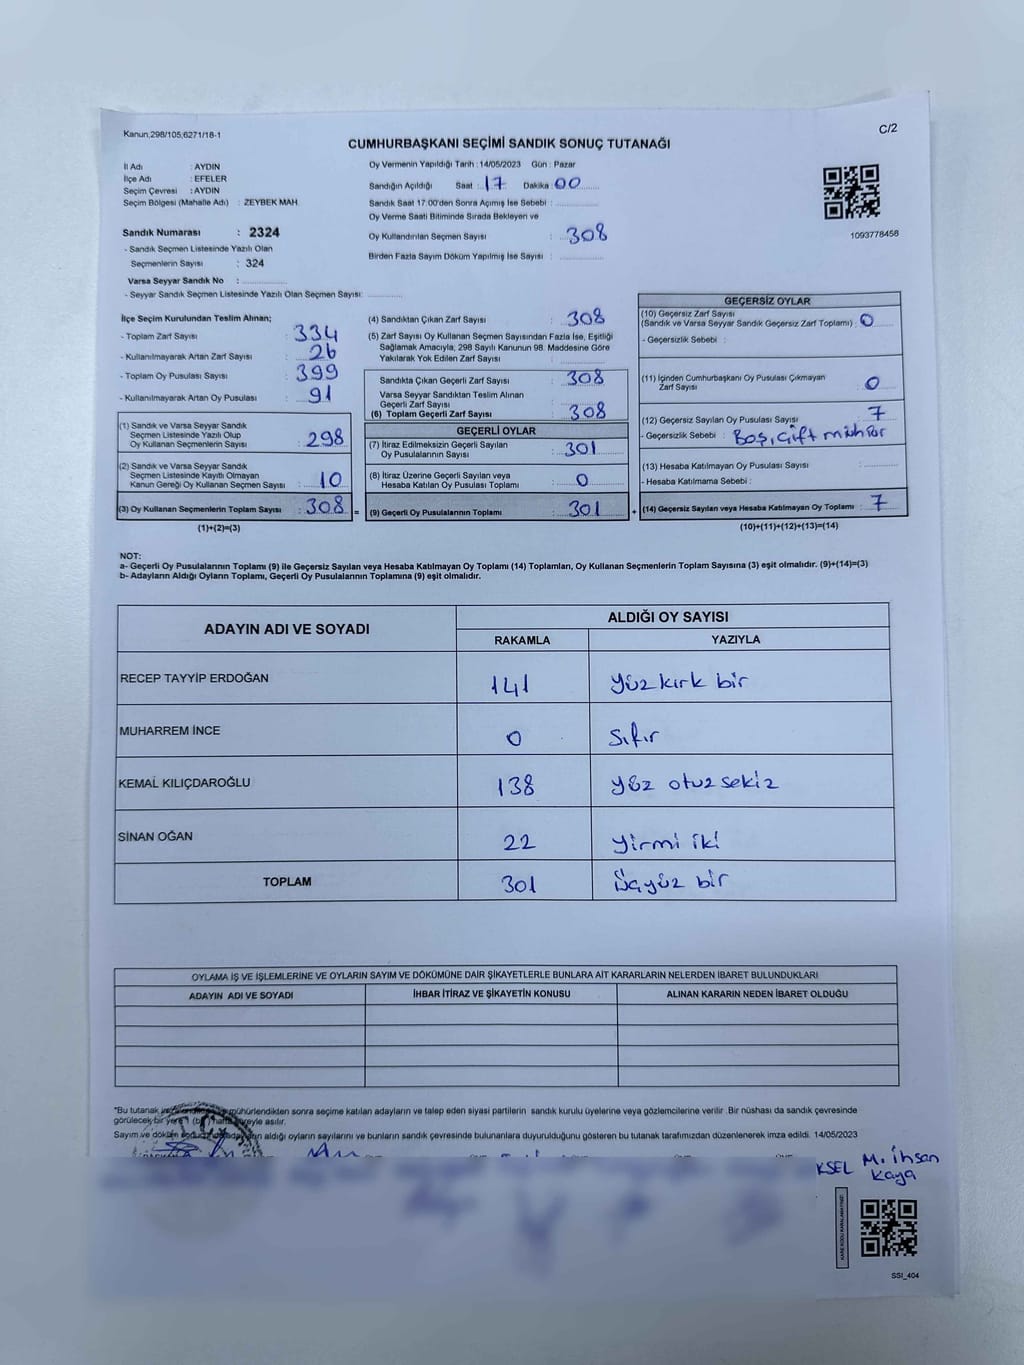 Kanun,298/105,6271/18-1
C/2
CUMHURBAŞKANI SEÇİMİ SANDIK SONUÇ TUTANAĞI
İl Adı : AYDIN
İlçe Adı : EFELER
Seçim Çevresi : AYDIN
Seçim Bölgesi (Mahalle Adı) : ZEYBEK MAH.
Sandık Numarası : 2324
- Sandık Seçmen Listesinde Yazılı Olan
Seçmenlerin Sayısı : 324
Varsa Seyyar Sandık No :
- Seyyar Sandık Seçmen Listesinde Yazılı Olan Seçmen Sayısı:
Oy Vermenin Yapıldığı Tarih :14/05/2023 Gün : Pazar
Sandığın Açıldığı Saat : 17 Dakika : 00
Sandık Saat 17.00'den Sonra Açımış İse Sebebi :
Oy Verme Saati Bitiminde Sırada Bekleyen ve
Oy Kullandırılan Seçmen Sayısı : 308
Birden Fazla Sayım Döküm Yapılmış İse Sayısı :
1093778458
İlçe Seçim Kurulundan Teslim Alınan;
- Toplam Zarf Sayısı : 334
- Kullanılmayarak Artan Zarf Sayısı : 26
- Toplam Oy Pusulası Sayısı : 399
- Kullanılmayarak Artan Oy Pusulası : 91
(1) Sandık ve Varsa Seyyar Sandık
Seçmen Listesinde Yazılı Olup
Oy Kullanan Seçmenlerin Sayısı : 298
(2) Sandık ve Varsa Seyyar Sandık
Seçmen Listesinde Kayıtlı Olmayan
Kanun Gereği Oy Kullanan Seçmen Sayısı : 10
(3) Oy Kullanan Seçmenlerin Toplam Sayısı : 308 =
(1)+(2)=(3)
(4) Sandıktan Çıkan Zarf Sayısı : 308
(5) Zarf Sayısı Oy Kullanan Seçmen Sayısından Fazla İse, Eşitliği
Sağlamak Amacıyla, 298 Sayılı Kanunun 98. Maddesine Göre
Yakılarak Yok Edilen Zarf Sayısı :
Sandıkta Çıkan Geçerli Zarf Sayısı : 308
Varsa Seyyar Sandıktan Teslim Alınan
Geçerli Zarf Sayısı :
(6) Toplam Geçerli Zarf Sayısı : 308
GEÇERLİ OYLAR
(7) İtiraz Edilmeksizin Geçerli Sayılan
Oy Pusulalarının Sayısı : 301
(8) İtiraz Üzerine Geçerli Sayılan veya
Hesaba Katılan Oy Pusulası Toplamı : 0
(9) Geçerli Oy Pusulalarının Toplamı : 301 +
GEÇERSİZ OYLAR
(10) Geçersiz Zarf Sayısı
(Sandık ve Varsa Seyyar Sandık Geçersiz Zarf Toplamı) : 0
- Geçersizlik Sebebi :
(11) İçinden Cumhurbaşkanı Oy Pusulası Çıkmayan
Zarf Sayısı : 0
(12) Geçersiz Sayılan Oy Pusulası Sayısı : 7
- Geçersizlik Sebebi : Boş, Çift mühür
(13) Hesaba Katılmayan Oy Pusulası Sayısı :
- Hesaba Katılmama Sebebi :
(14) Geçersiz Sayılan veya Hesaba Katılmayan Oy Toplamı : 7
(10)+(11)+(12)+(13)=(14)
NOT:
a- Geçerli Oy Pusulalarının Toplamı (9) ile Geçersiz Sayılan veya Hesaba Katılmayan Oy Toplamı (14) Toplamları, Oy Kullanan Seçmenlerin Toplam Sayısına (3) eşit olmalıdır. (9)+(14)=(3)
b- Adayların Aldığı Oyların Toplamı, Geçerli Oy Pusulalarının Toplamına (9) eşit olmalıdır.
ADAYIN ADI VE SOYADI
ALDIĞI OY SAYISI
RAKAMLA YAZIYLA
RECEP TAYYİP ERDOĞAN 141 Yüz kırk bir
MUHARREM İNCE 0 Sıfır
KEMAL KILIÇDAROĞLU 138 yüz otuz sekiz
SİNAN OĞAN 22 yirmi iki
TOPLAM 301 Üçyüz bir
OYLAMA İŞ VE İŞLEMLERİNE VE OYLARIN SAYIM VE DÖKÜMÜNE DAİR ŞİKAYETLERLE BUNLARA AİT KARARLARIN NELERDEN İBARET BULUNDUKLARI
ADAYIN ADI VE SOYADI İHBAR İTİRAZ VE ŞİKAYETİN KONUSU ALINAN KARARIN NEDEN İBARET OLDUĞU
*Bu tutanak mühürlendikten sonra seçime katılan adayların ve talep eden siyasi partilerin sandık kurulu üyelerine veya gözlemcilerine verilir .Bir nüshası da sandık çevresinde
görülecek bir yere 1 (bir) hafta süreyle asılır.
Sayım ve döküm aldığı oyların sayılarını ve bunların sandık çevresinde bulunanlara duyurulduğunu gösteren bu tutanak tarafımızdan düzenlenerek imza edildi. 14/05/2023
KSEL M. İhsan
Kaya
SSI_404